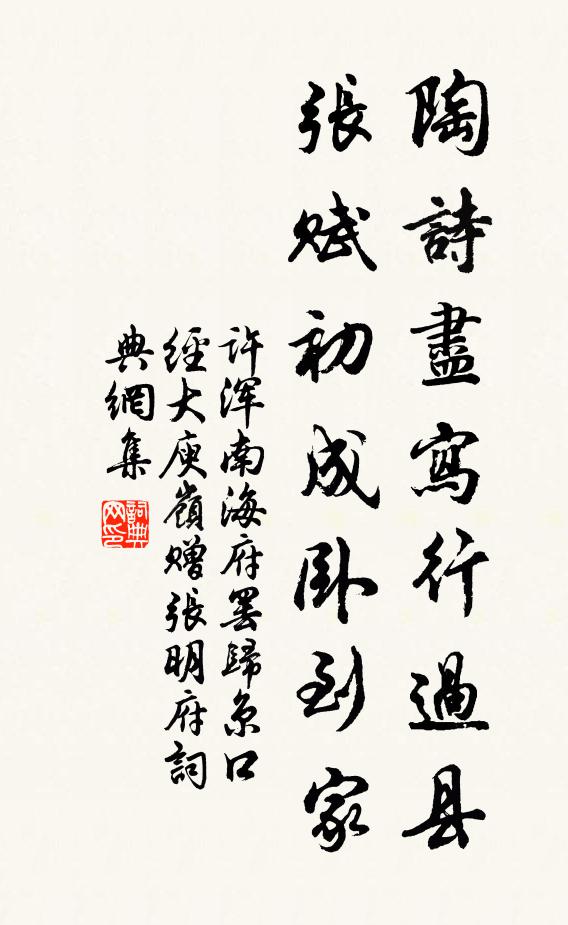 陶詩盡寫行過县
張賦初成卧到家
许渾南海府罢歸京口
經大庾嶺赠張明府詞
典網集
詞典网印